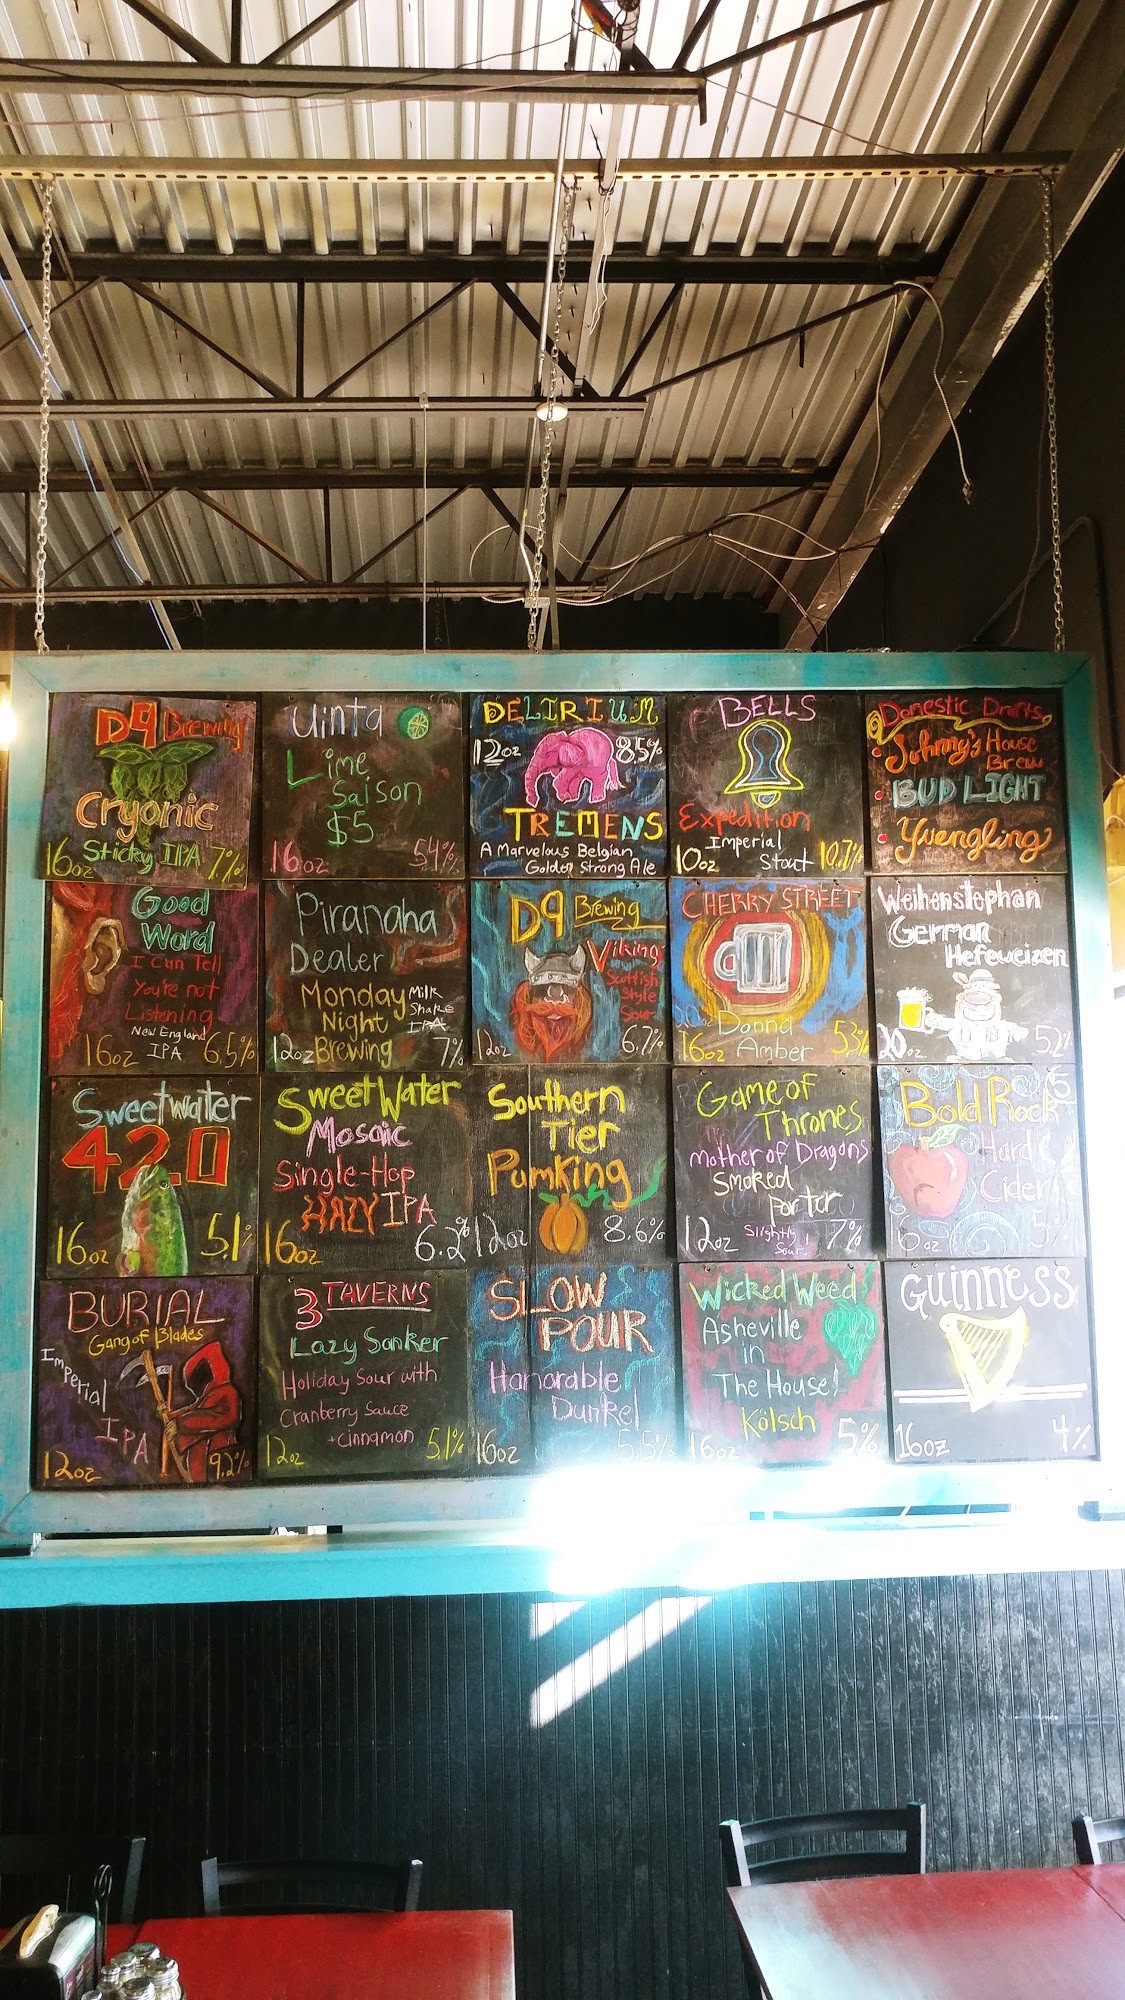 D9 Brewing
Cryonic
Sticky IPA
16oz 7%
Uinta
Lime
Saison
$5
16oz 5.4%
DELIRIUM
12oz 8.5%
TREMENS
A Marvelous Belgian
Golden Strong Ale
BELLS
Expedition
Imperial
Stout
10oz 10.7%
Domestic Drafts
Johnny's House
Brew
BUD LIGHT
Yuengling
Good
Word
I Can Tell
You're not
Listening
New England
IPA
16oz 6.5%
Piranaha
Dealer
Monday
Night
Brewing
Milk
Shake
IPA
12oz 7%
D9 Brewing
Viking
Scottish
Style
Sour
12oz 6.7%
CHERRY STREET
Donna
Amber
16oz 5.3%
Weihenstephan
German
Hefeweizen
20oz 5.2%
Sweetwater
420
16oz 5.1%
SweetWater
Mosaic
Single-Hop
HAZY IPA
16oz 6.2%
Southern
Tier
Pumking
12oz 8.6%
Game of
Thrones
Mother of Dragons
Smoked
Porter
Slightly
Sour
12oz 7%
Bold Rock
Hard
Cider
16oz 5%
BURIAL
Gang of Blades
Imperial
IPA
12oz 9.2%
3 TAVERNS
Lazy Sanker
Holiday Sour with
Cranberry Sauce
+cinnamon
12oz 5.1%
SLOW
POUR
Honorable
Dunkel
16oz 5.5%
Wicked Weed
Asheville
in
The House!
Kölsch
16oz 5%
GUINNESS
16oz 4%